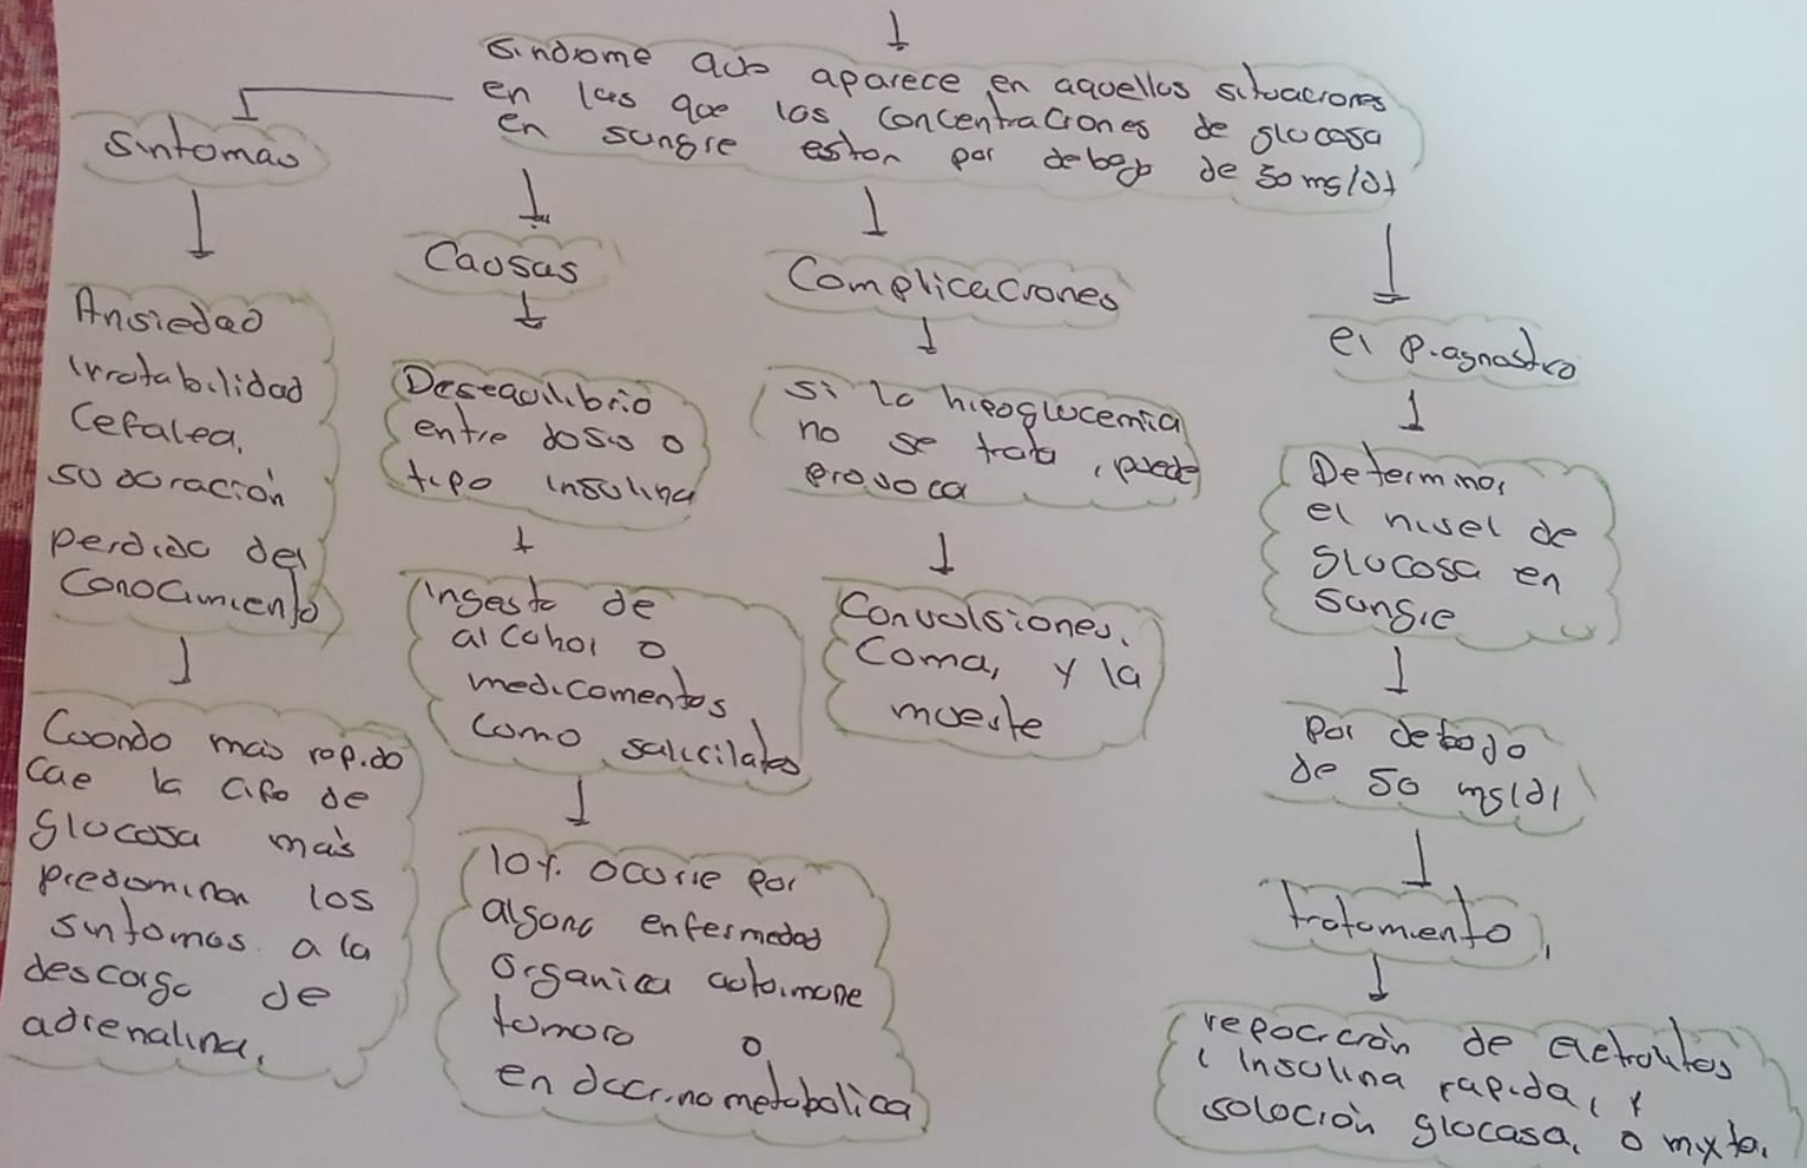 Sindrome que aparece en aquellas situaciones
en las que las concentraciones de glucosa
en sangre estan por debajo de 50 mg/dl
Sintomas
Ansiedad
irratabilidad
Cefalea,
sudoración
perdida del
conocimiento
Cuando mas rapido
cae la cifra de
glucosa más
predominan los
sintomas a la
descarga de
adrenalina,
Causas
Desequilibrio
entre dosis o
tipo insulina
ingesta de
alcohol o
medicamentos
como salicilatos
10% ocurre por
alguna enfermedad
Organica autoimune
tumora o
endocrinometabolica
Complicaciones
Si la hipoglucemia
no se trata, puede
provoca
Convulsiones,
Coma, y la
muerte
el Diagnostico
Determinar
el nivel de
glucosa en
sangre
Por debajo
de 50 mg/dl
tratamiento,
repocición de eletrolitos
insulina rapida, y
solución glucasa, o mixta.